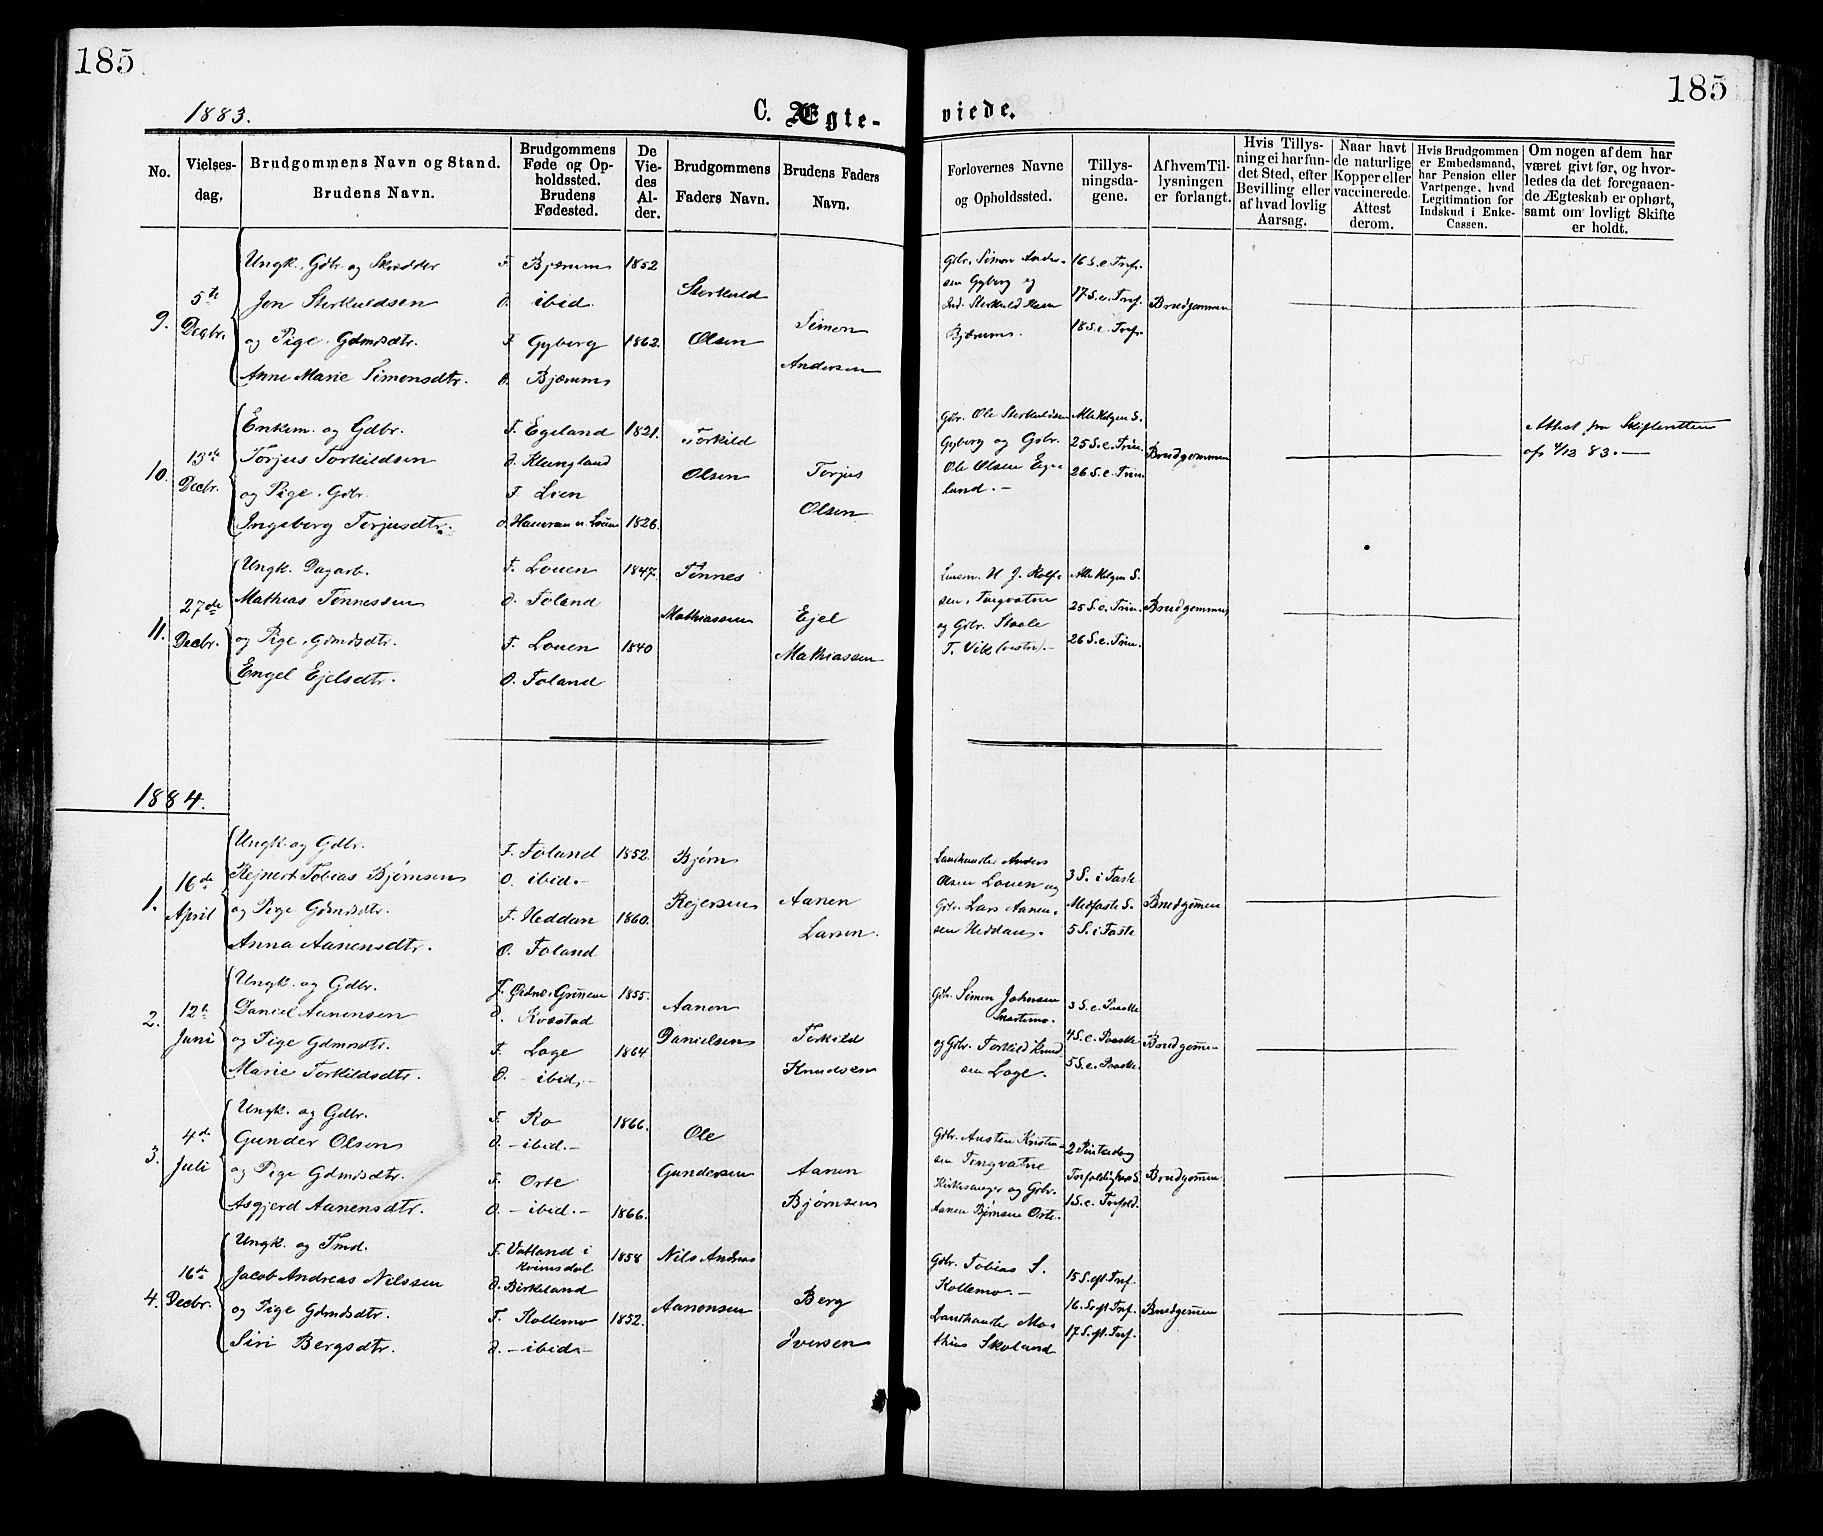 185
185
1883.
C. Ægte-
viede.
No.
Vielses-
dag.
Brudgommens Navn og Stand.
Brudens Navn.
Brudgommens
Føde og Op-
holdssted.
Brudens
Fødested.
De
Vie-
des
Al-
der.
Brudgommens
Faders Navn.
Brudens Faders
Navn.
Forlovernes Navne
og Opholdssted.
Tillys-
ningsda-
gene.
Af hvem Til-
lysningen
er forlangt.
Hvis Tillys-
ning ei har fun-
det Sted, efter
Bevilling eller
af hvad lovlig
Aarsag.
Naar havt
de naturlige
Kopper eller
vaccinerede.
Attest
derom.
Hvis Brudgommen
er Embedsmand,
har Pension eller
Vartpenge, hvad
Legitimation for
Indskud i Enke-
Cassen.
Om nogen af dem har
været givt før, og hvor-
ledes da det foregaaen-
de Ægteskab er ophørt,
samt om lovligt Skifte
er holdt.
9.
5te
Decbr.
Ungk. Gdbr. og Skrædder
Jon Sterkuldsen
og Pige. Gdmdsdtr.
Anne Marie Simonsdtr.
F. Bjærums
O. ibid.
F. Gyberg
O. Bjærums
1852
1862.
Sterkuld
Olsen
Simon
Andersen
Gbr. Simon Ander-
sen Gyberg og
Sterkuld Olsen
Bjærums.
16 S. e. Tref.
17 S. e. Tref.
18 S. e. Tref.
Brudgommen
10.
13de
Decbr.
Enkem. og Gdbr.
Torjus Torkildsen
og Pige. Gdbr.
Ingeborg Torjusdtr.
F. Egeland
O. Klungland
F. Lien
O. Hameran n. Louen
1821.
1826.
Torkild
Olsen
Torjus
Olsen
Gbr. Ole Sterkuldsen
Gyberg og Gbr.
Ole Olsen Ege-
land. —
Alle Helgen S.
25 S. e. Trin.
26 S. e. Trin.
Brudgommen
Attest fra Skifteretten
af 4/12 83. —
11.
27de
Decbr.
Ungk. Dagarb.
Mathias Tønnessen
og Pige. Gdmdsdtr.
Engel Ejelsdtr.
F. Louen
O. Foland
F. Louen
O. Foland
1847.
1840
Tønnes
Mathiassen
Ejel
Mathiassen
Lensm. H. J. Rolf-
sen, Tingvatne
og Gbr. Staale
T. Vik (vestre). —
Alle Helgen S.
25 S. e. Trin.
26 S. e. Trin.
Brudgommen
1884.
1.
16de
April
Ungk. og Gdbr.
Rejnert Tobias Bjørnsen
og Pige Gdmdsdtr.
Anna Aanensdtr.
F. Foland
O. ibid. -
F. Heddan
O. Foland
1852
1860.
Bjørn
Rejersen
Aanen
Larsen.
Landhandler Anders
Olsen Louen og
Gbr. Lars Aanen-
sen Heddan.
3 S. i Faste
Midfaste S.
5 S. i Faste
Brudgommen
2.
12te
Juni
Ungk. og Gdbr.
Daniel Aanensen
og Pige Gdmdsdtr.
Marie Torkildsdtr.
F.
O. Kvastad
F. Loge
O. - ibid. -
1855.
1864
Aanen
Danielsen
Torkild
Knudsen
Gbr. Simon Johnsen
og Gbr. Torkild Knud-
sen Loge.
3 S. e. Paaske
4 S. e. Paaske
5 S. e. Paaske.
Brudgommen
3.
4de
Juli
Ungk. og Gdbr.
Gunder Olsen
og Pige Gdmdsdtr.
Asgjerd Aanensdtr.
F. Ro
O. - ibid. -
F. Orte
O. - ibid. -
1866.
1866.
Ole
Gundersen
Aanen
Bjørnsen
Gbr. Austen Kristen-
sen Tingvatne
Kirkesanger og Gbr.
Aanen Bjørnsen Orte.
2 Pintsedag
Trefoldigheds S.
1 S. e. Trefold.
Brudgommen
4.
16de
Decbr.
Ungk. og Tmd.
Jacob Andreas Nilssen
og Pige Gdmdsdtr.
Siri Bergsdtr.
F. Vatland i
Kvinesdal
O. Birkeland
F. Kollemo
O. - ibid. -
1858
1852.
Nils Andreas
Aanensen
Berg
Iversen
Gbr. Tobias S.
Kollemo. —
Landhandler Ma-
thias Skoland
15 S. eft. Tref.
16 S. eft. Tref.
17 S. eft. Tref.
Brudgommen